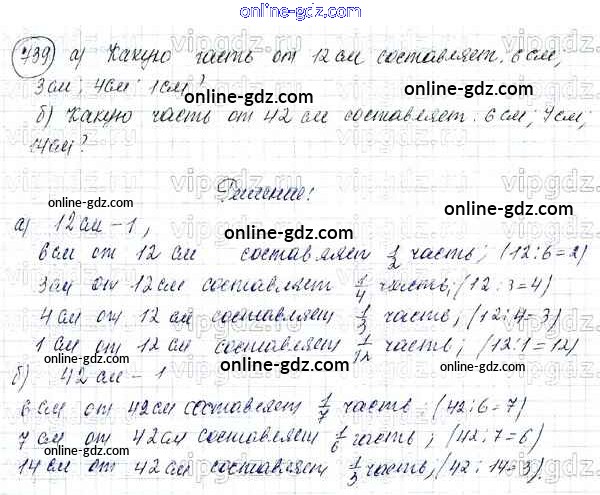 online-gdz.com
739) а) Какую часть от 12 см составляет: 6 см,
3 см; 4 см; 1 см?
online-gdz.com online-gdz.com
б) Какую часть от 42 см составляет: 6 см; 7 см;
14 см?
Решение:
online-gdz.com online-gdz.com
а) 12 см – 1,
6 см от 12 см составляет 1/2 часть; (12:6=2)
online-gdz.com
3 см от 12 см составляет 1/4 часть; (12:3=4)
online-gdz.com online-gdz.com
4 см от 12 см составляет 1/3 часть; (12:4=3)
1 см от 12 см составляет 1/12 часть; (12:1=12)
online-gdz.com online-gdz.com
б) 42 см – 1
6 см от 42 см составляет 1/7 часть; (42:6=7)
7 см от 42 см составляет 1/6 часть; (42:7=6)
14 см от 42 см составляет 1/3 часть; (42:14=3).
online-gdz.com online-gdz.com